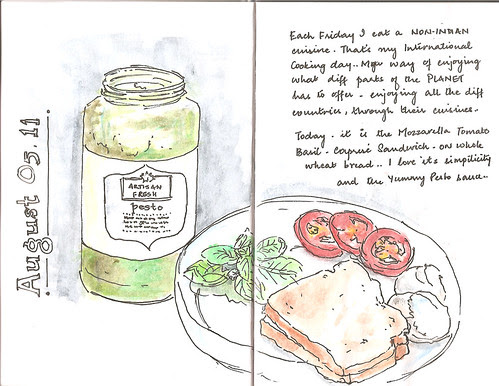 August 05. 11
ARTISAN
FRESH
pesto
Each Friday I eat a NON-INDIAN
cuisine. That's my International
Cooking day.. My way of enjoying
what diff parts of the PLANET
has to offer - enjoying all the diff
countries, through their cuisines.
Today - it is the Mozzarella Tomato
Basil - Caprese Sandwich - on whole
wheat bread... I love its simplicity
and the Yummy Pesto sauce..